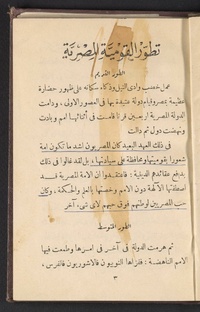 تطور القومية المصرية
الطور القديم
عمل خصب وادى النيل وذكاء سكانه على ظهور حضارة
عظيمة بمصر وقيام دولة عتيدة بها فى العصور الاولى، ودامت
الدولة المصرية اربعين قرنا قامت فى أثنائها امم وبادت
ونهضت دول ثم دالت
فى ذلك العهد البعيد كان المصريون اشد ما تكون امة
شعورا بقوميتها ومحافظة على سيادتها، بل لقد غالوا فى ذلك
بدافع عقائدهم الدينية : فاعتقدوا ان الامة المصرية قد
اصطفتها الآلهة دون الامم وخصتها بالعلم والحكمة، وكان
حب المصريين لوطنهم فوق حبهم لاى شىء، آخر
الطور المتوسط
ثم هرمت الدولة فى آخر امرها وطمعت فيها
الامم الناهضة : فغزاها النوبيون فالاشوريون فالفرس،
٣